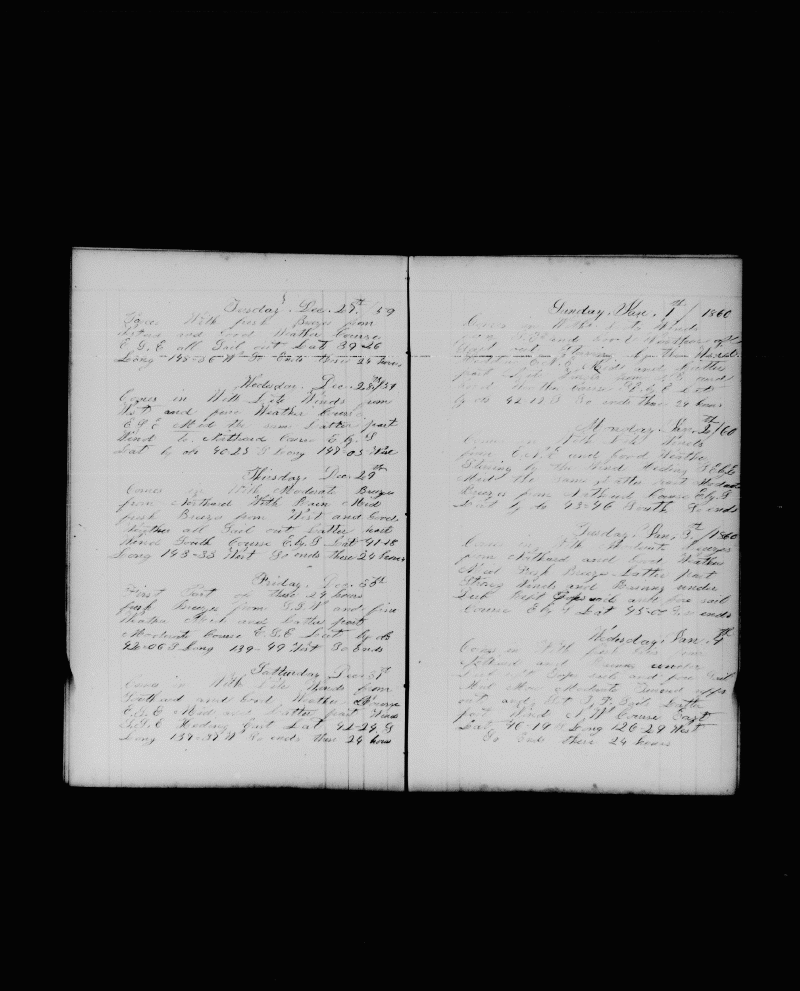 Tusday. Dec. 27th. 59
Comes With fresh Breeze from
and Good Weather Course
E S E all Sail out Lat 39-26
Long 148-26 W So Ends these 24 hours
Wedesday. Dec. 28th/59
Comes in With Lite Winds from
West and fine Weather Course
E S E Mid the same Latter part
Wind to Nothard Course E by S
Lat by ob 40-23 S Long 147-03 West
Thirsday. Dec 29th
Comes in With Moderate Breezes
from Northard With Rain Mid
fresh Breezes from West and Good
Weather all Sail out Latter part
Wind South Course E by S Lat 41-18
Long 143-33 West So ends these 24 hours
Friday. Dec. 30th
First Part of these 24 hours
fresh Breezes from S.S.W and fine
Weather Mid and Latter part
Moderate Course E S E Lat by ob
42-06 S Long 139-49 West So Ends
Satturday Dec 31st
Comes in With Lite Winds from
Southard and Good Weather Course
E by E Mid and Latter part Winds
S.S.E Heading East Lat 42-24 S
Long 137-37 W So ends these 24 hours
Sunday. Jan. 1th/1860
Comes in With Lite Winds
from and Good Weather
by the Wind
Mid and Latter
part
Course E by E Lat
by ob 42-12 S So ends these 24 hours
Monday. Jan. 2th/60
Comes in With Lite Winds
from E.S.E and good Weather
Stering by the Wind Heading S E by E
Mid the Same Latter part Moderate
Breezes from Nothard Course E by S
Lat by ob 43-46 South So ends
Tusday. Jan, 3th/1860
Comes in With Moderate Breezes
from Nothard and Good Weather
Mid Fresh Breeze Latter part
Strong Winds and Runing under
Dub Reeft Topsails and fore sail
Course E by S Lat 45-0 So ends
Wedesday. Jan 4th
Comes in With fresh from
Nothard and Runing under
Dub reft Tops sails and fore Sail
Mid More Moderate Turned
out and Set T. G. Sails Latter
part Wind N. W Course East
Lat 46-19 S Long 126-29 West
So Ends these 24 hours